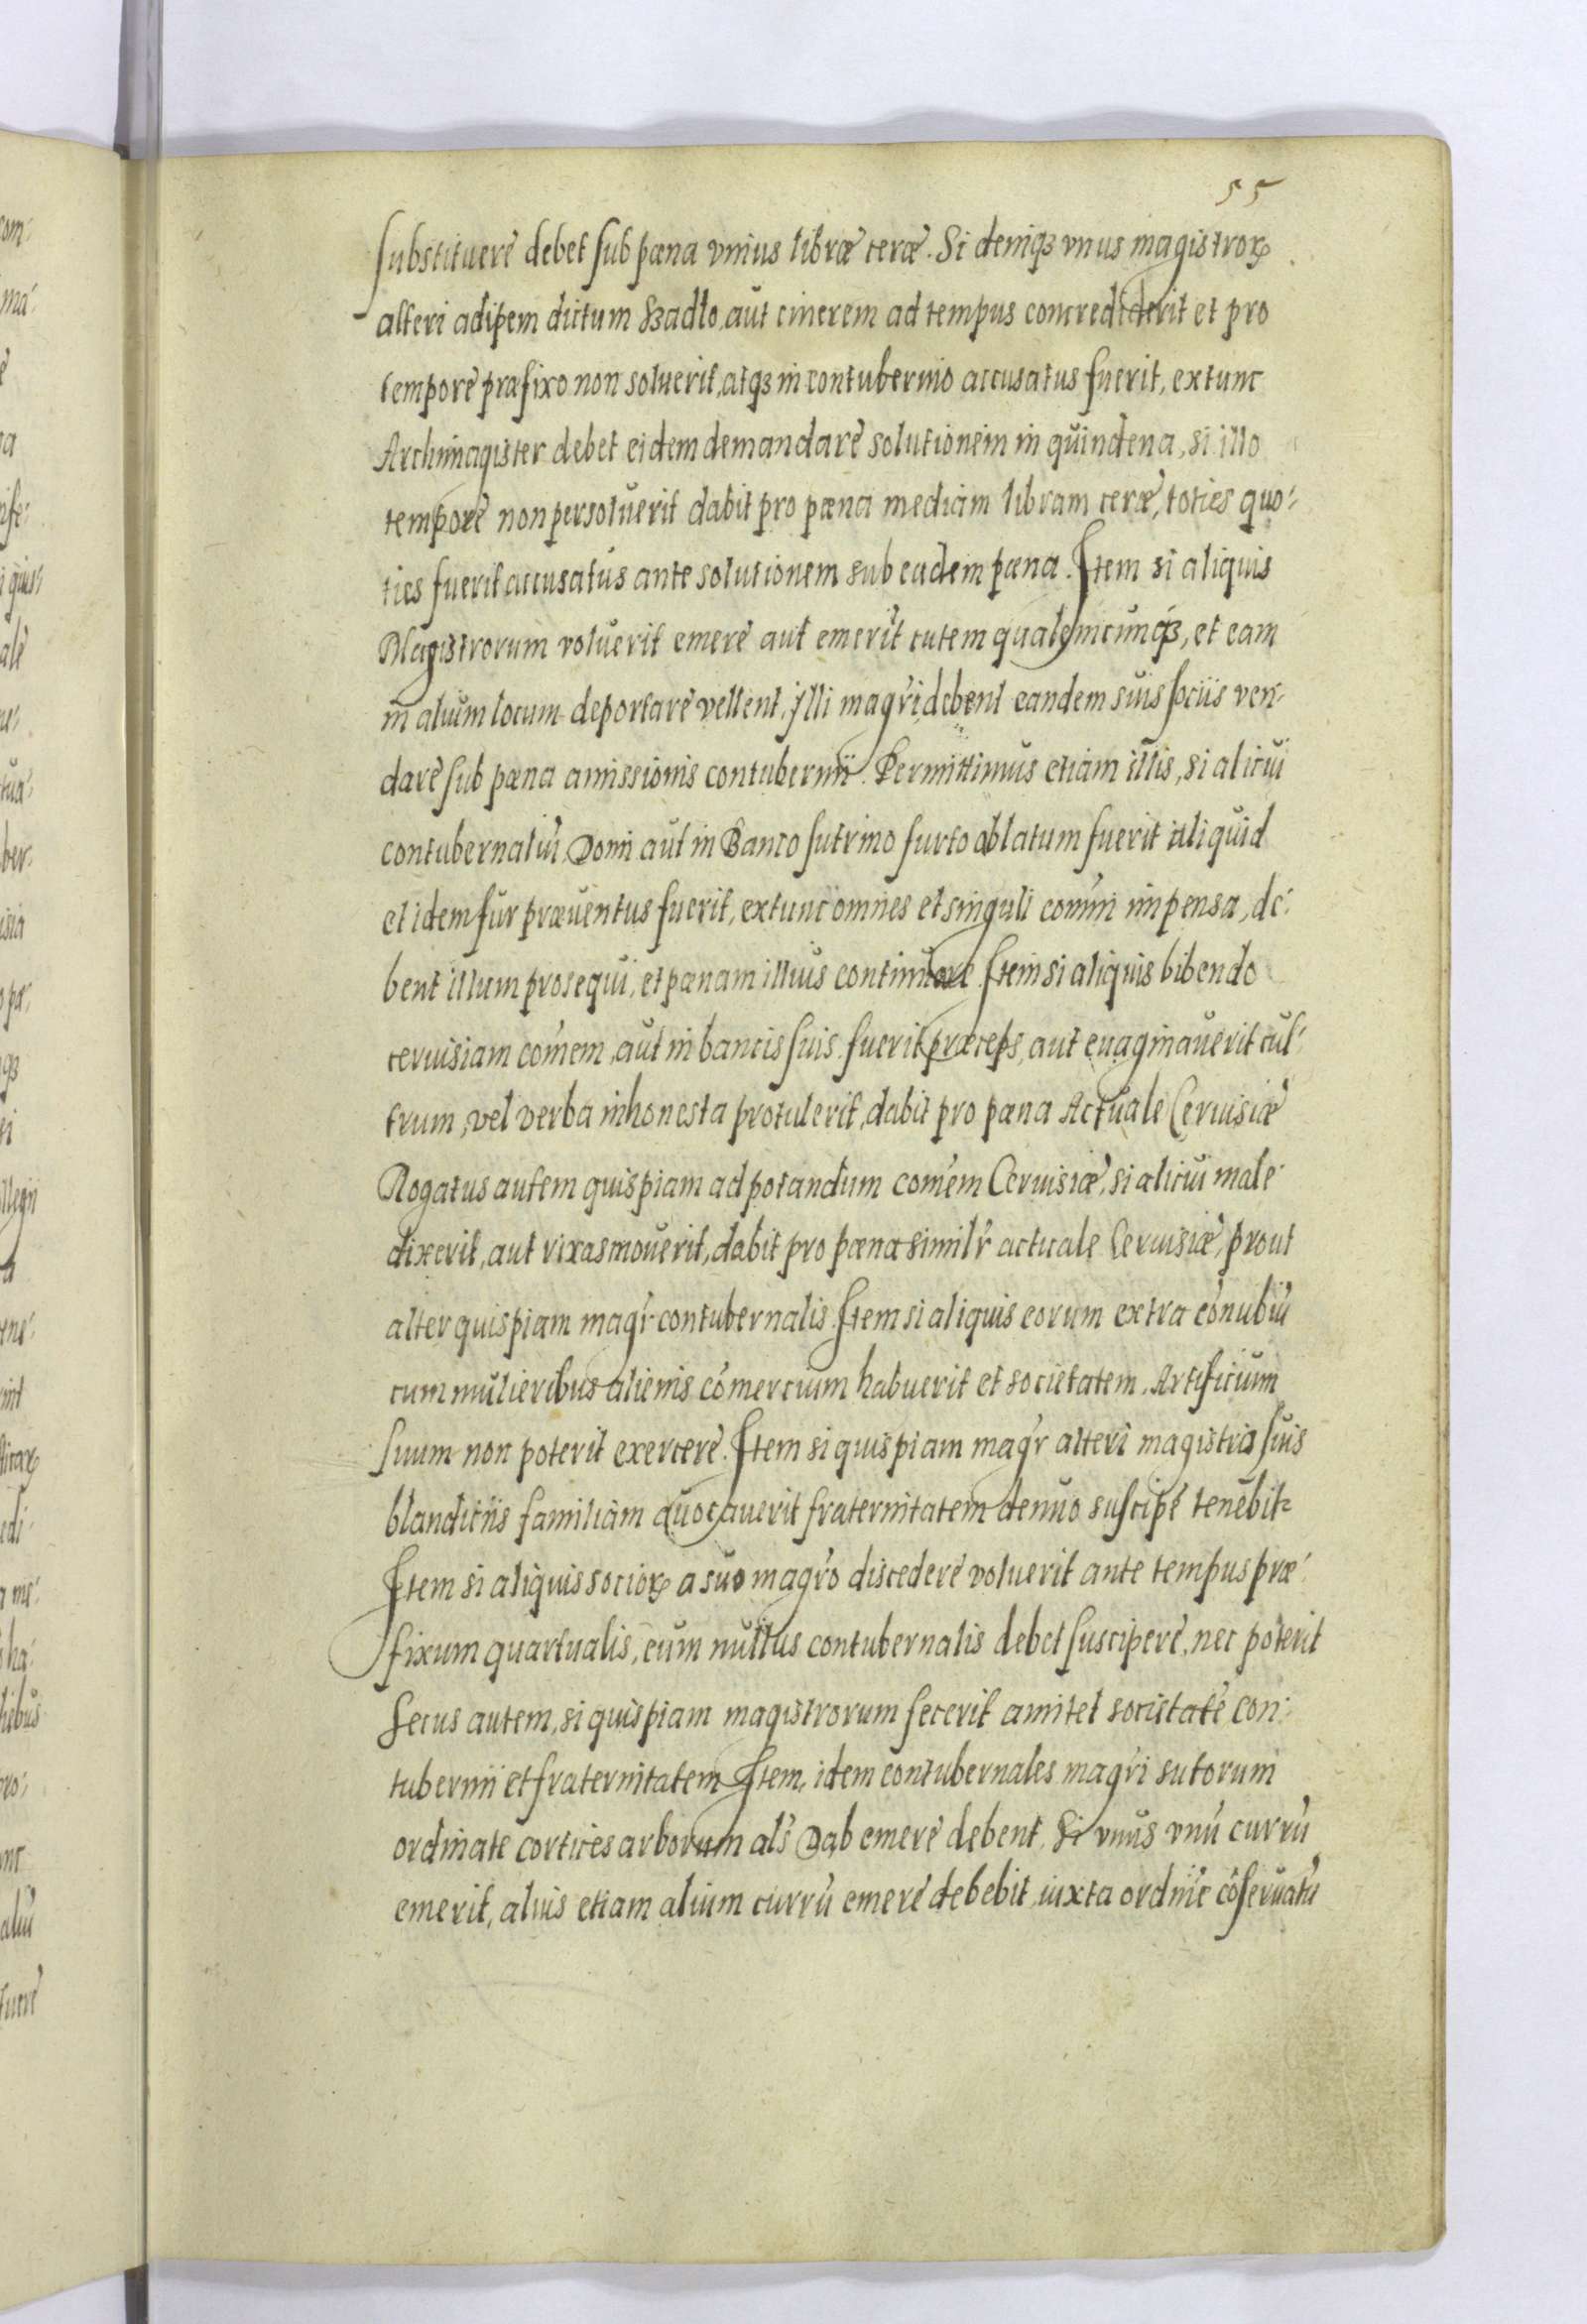 55
substituere debet sub pæna vnius libræ ceræ. Si deniqꝫ vnus magistroꝝ
alteri adipem dictum Szadlo, aut cinerem ad tempus concrediderit et pro
tempore præfixo non soluerit, atqꝫ in contubernio accusatus fuerit, extunc
Archimagister debet eidem demandare solutionem in quindena, si illo
tempore non persoluerit dabit pro pæna mediam libram ceræ, toties quo-
ties fuerit accusatus ante solutionem sub eadem pæna. Item si aliquis
Magistrorum voluerit emere aut emerit cutem qualemcunqꝫ, et eam
in alium locum deportare vellent, jlli magr̃i debent eandem suis sociis ven-
dare sub pæna amissionis contubernii. Permittimus etiam illis, si alicui
contubernaliũ, Domi aut in Banco sutrino furto ablatum fuerit aliquid
et idem fur præuentus fuerit, extunc omnes et singuli com̃ni impensa, de-
bent illum prosequi, et pænam illius continuare. Item si aliquis bibendo
ceruisiam com̃em, aut in bancis suis fuerit præceps, aut euaginauerit cul-
trum, vel verba inhonesta protulerit, dabit pro pæna Actuale Ceruisiæ
Rogatus autem quispiam ad potandum com̃em Ceruisiæ, si alicui male
dixerit, aut rixas mouerit, dabit pro pæna similr̃ actuale Ceruisiæ, prout
alter quispiam magr̃ contubernalis. Item si aliquis eorum extra cõnubiũ
cum mulieribus alienis cõmercium habuerit et societatem, Artificium
suum non poterit exercere. Item si quispiam magr̃ alteri magistro suis
blanditiis familiam auocauerit fraternitatem denuo suscipe tenebit˜
Item si aliquis socioꝝ a suo magr̃o discedere voluerit ante tempus præ-
fixum quartualis, eum nullus contubernalis debet suscipere, nec poterit
secus autem, si quispiam magistrorum fecerit amitet societatẽ con-
tubernii et fraternitatem Item, idem contubernales magr̃i sutorum
ordinate cortices arborum als̃ Dab emere debent. Si vnus vnũ currũ
emerit, alius etiam alium currũ emere debebit, iuxta ordinẽ cõseruatũ